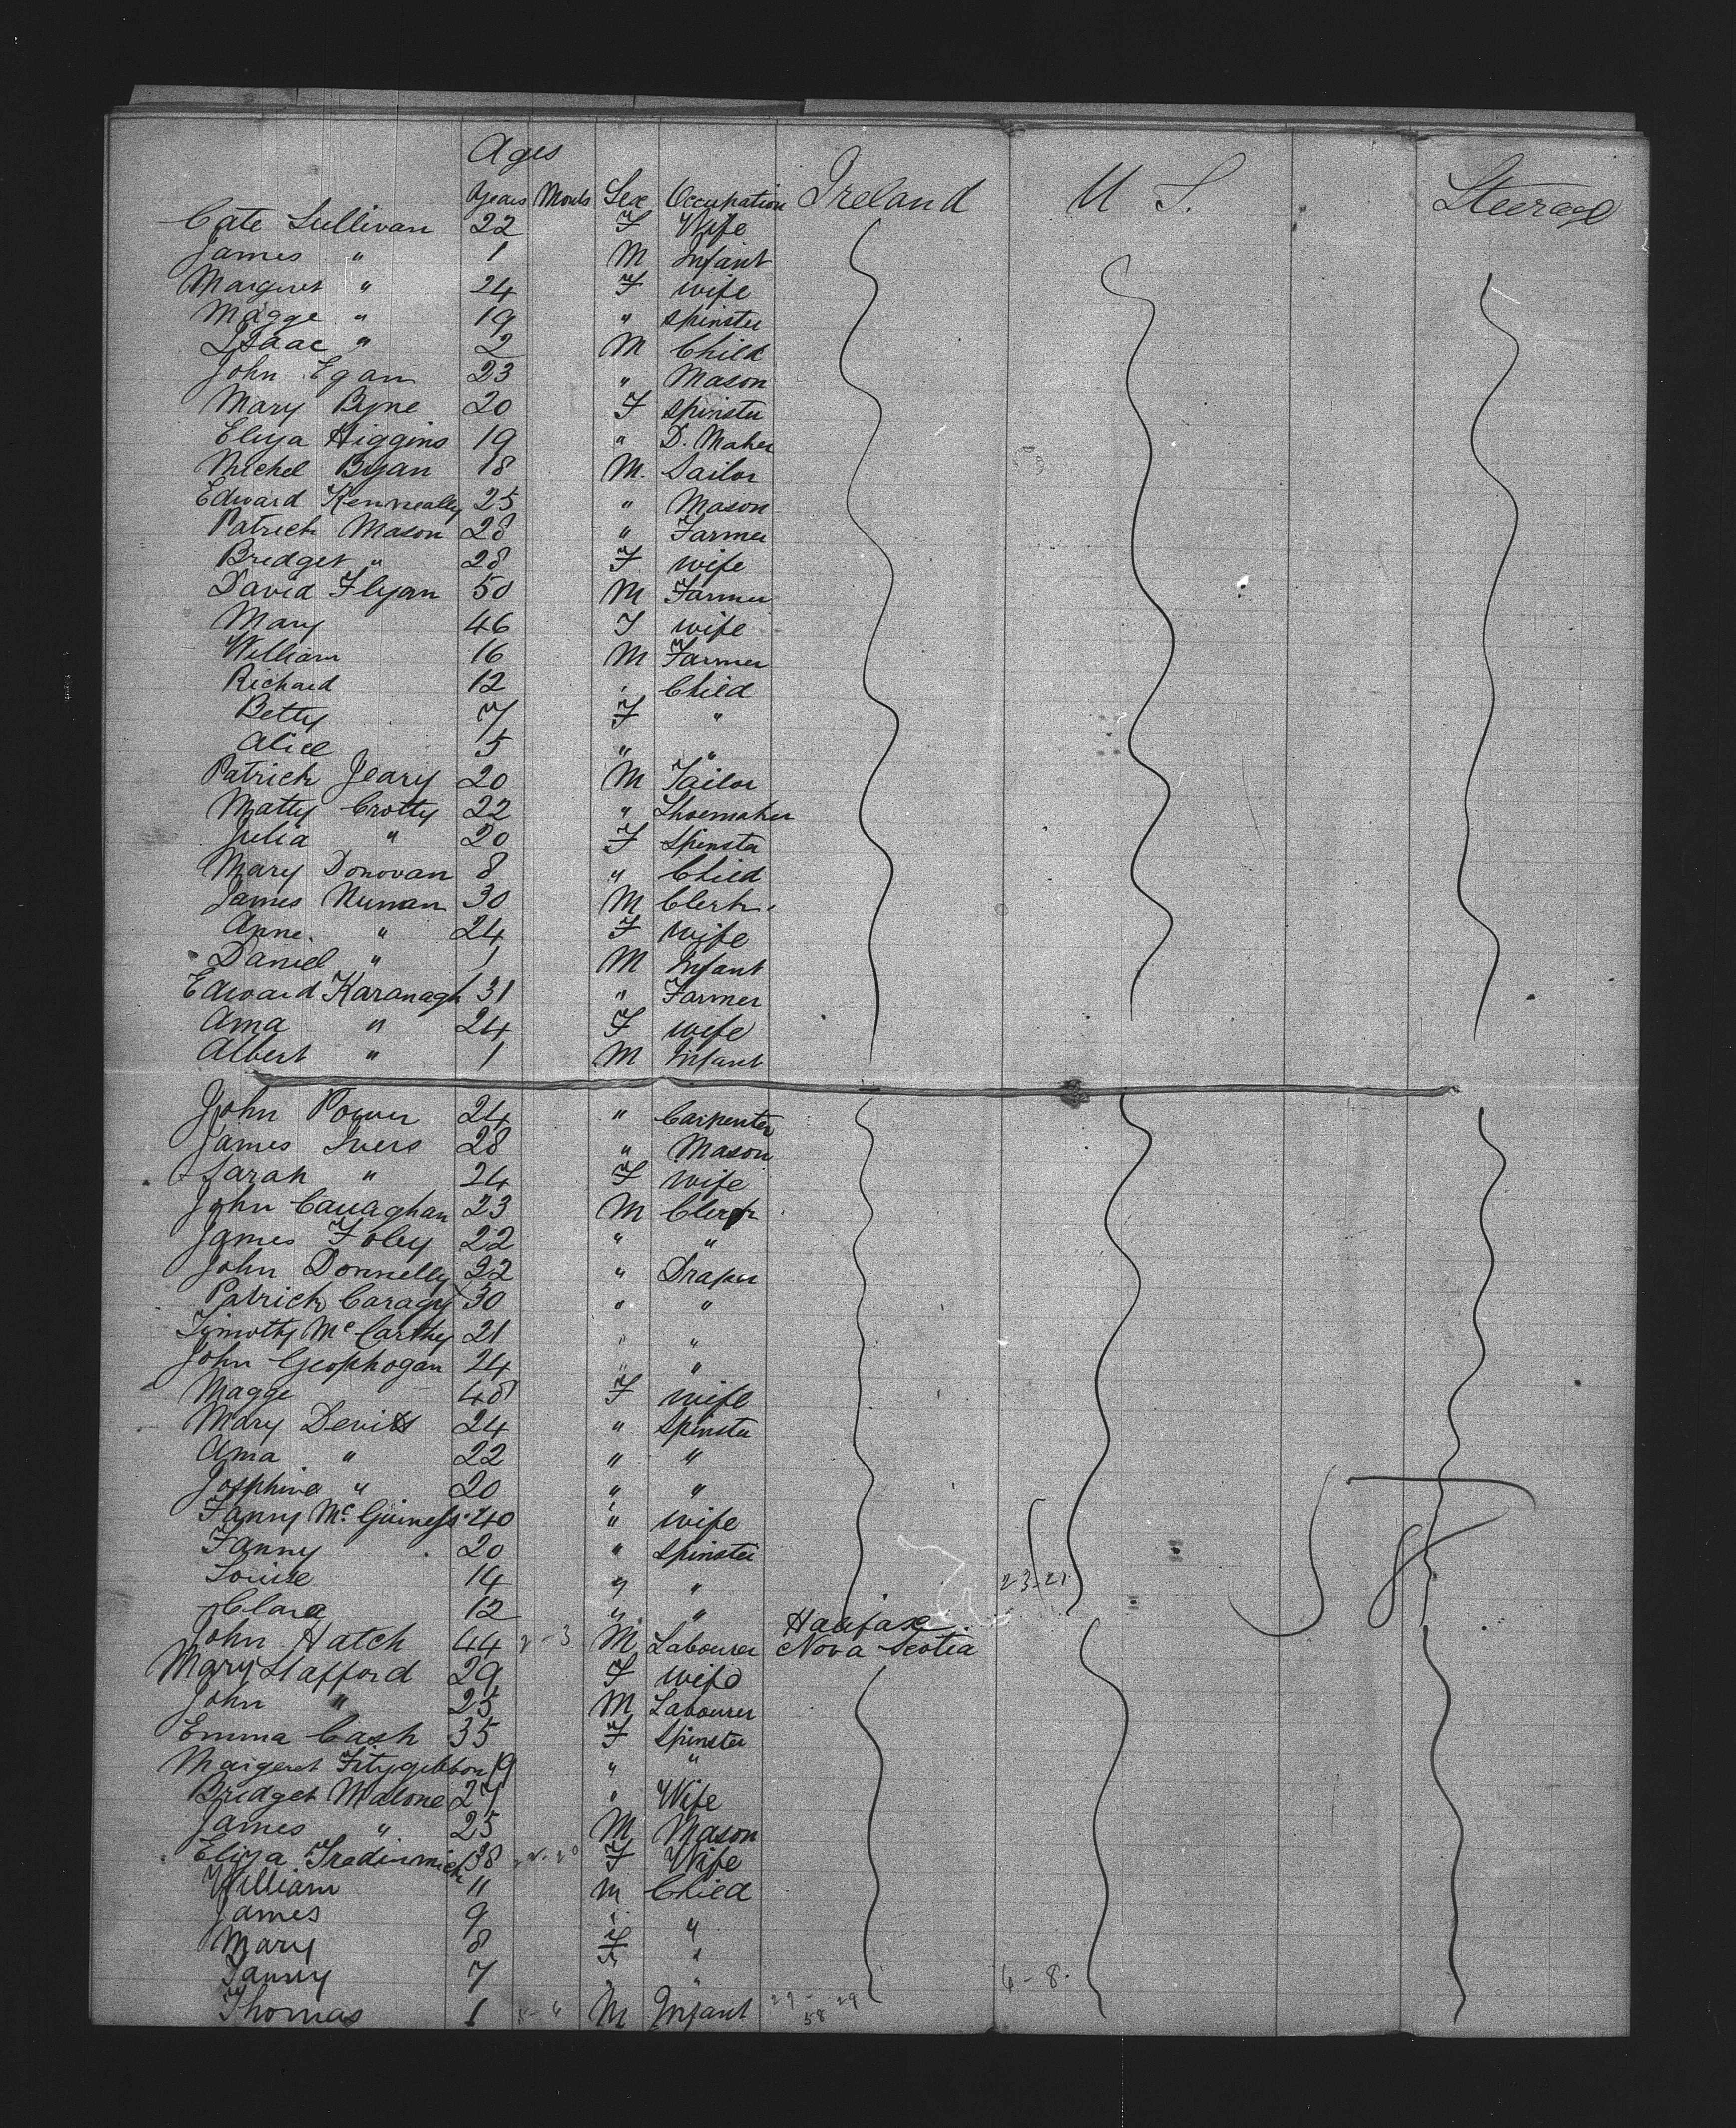 Ages
Years Monts Sex Occupation Ireland U S. Steerage
Cate Sullivan 22 F Wife
James " 1 M Infant
Margret " 24 F wife
Magge " 19 " spinster
Isaac " 2 M Child
John Egan 23 " Mason
Mary Byne 20 F spinster
Eliza Higgins 19 " D. Maker
Michel Byan 18 M. Sailor
Edward Kenneally 25 " Mason
Patrick Mason 28 " Farmer
Bridget " 28 F wife
David Flyan 50 M Farmer
Mary 46 F wife
William 16 M Farmer
Richard 12 " Child
Betty 7 F "
Alice 5 " "
Patrick Jeary 20 M Tailor
Matty Crotty 22 " Shoemaker
Julia " 20 F Spinster
Mary Donovan 8 " Child
James Nunan 30 M Clerk
Anne " 24 F wife
Daniel " 1 M Infant
Edward Karanagh 31 " Farmer
Anna " 24 F wife
Albert " 1 M Infant
John Power 24 " Carpenter
James Ivers 28 " Mason
Sarah " 24 F wife
John Cauaghan 23 M Clerk
James Foley 22 " "
John Donnelly 22 " Draper
Patrick Caragy 30 " "
Timothy McCarthy 21 " "
John Geophogan 24 " "
Magge 48 F wife
Mary Devitt 24 " Spinster
Anna " 22 " "
Josphine " 20 " "
Fanny McGuiness 40 " wife
Fanny 20 " Spinster
Louise 14 " "
23-21
Clara 12 " "
Halifax
John Hatch 44 2-3 M Labourer Nova Scotia
Mary Stafford 29 F wife
John " 25 M Labourer
Emma Cash 35 F Spinster
Margeret Fitzgibbon 19 " "
Bridget Malone 27 " Wife
James " 25 M Mason
Eliza Tredinnick 38 F Wife
William 11 M Child
James 9 " "
Mary 8 F "
Fanny 7 " " 6-8.
Thomas 1 5-6 M Infant 29-29
58